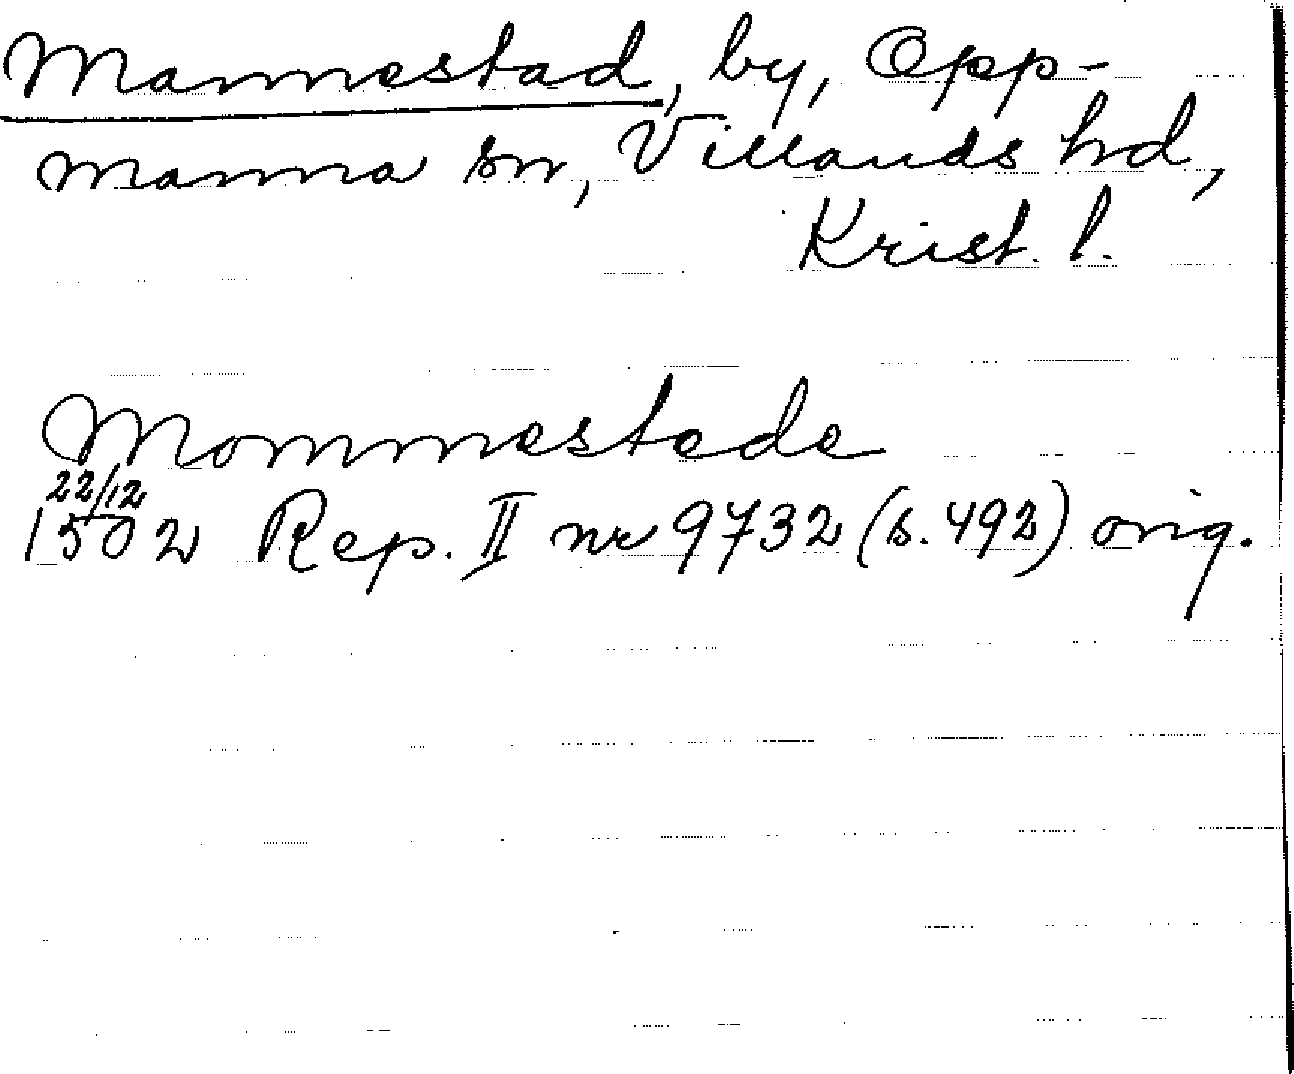 Mannestad, by, Opp-
manna sn, Villands hd,
Krist. l.
Mommestede
22/12
1502 Rep. II nr 9732 (s. 492) orig.